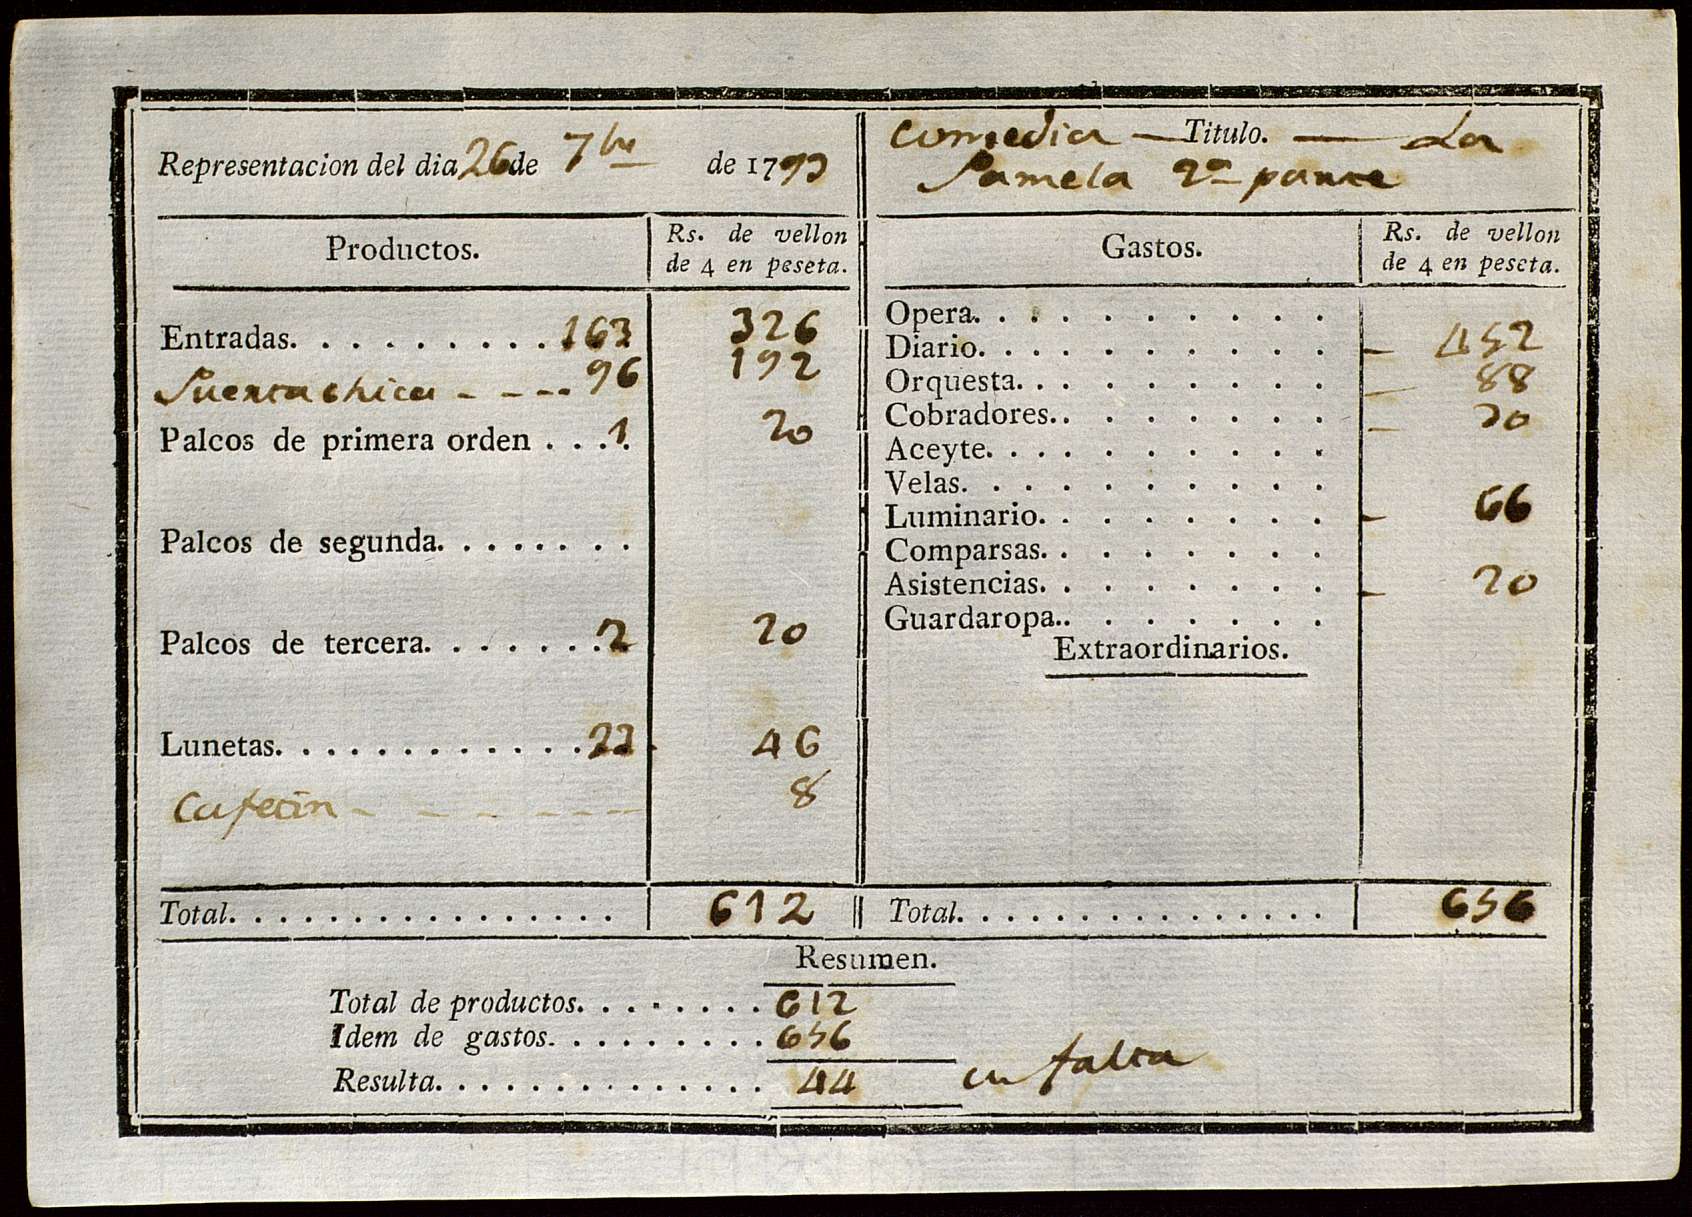 Representacion del dia 26 de 7bre de 1793
Comedia — Titulo. — La
Pamela 2a parte
Productos.
Rs. de vellon
de 4 en peseta.
Entradas. . . . . . . . . . 163 326
Puerta chica - - - - 96 192
Palcos de primera orden . . . 1. 20
Palcos de segunda. . . . . . . .
Palcos de tercera. . . . . . . 2 20
Lunetas. . . . . . . . . . . . . 23 46
Cafetin - - - - - - 8
Total. . . . . . . . . . . . . . . . 612
Gastos.
Rs. de vellon
de 4 en peseta.
Opera. . . . . . . . . . .
Diario. . . . . . . . . . . — 452
Orquesta. . . . . . . . . — 88
Cobradores. . . . . . . . — 30
Aceyte. . . . . . . . . . .
Velas. . . . . . . . . . .
Luminario. . . . . . . . — 66
Comparsas. . . . . . . .
Asistencias. . . . . . . . — 20
Guardaropa. . . . . . . .
Extraordinarios.
Total. . . . . . . . . . . . . . . 656
Resumen.
Total de productos. . . . . . . . 612
Idem de gastos. . . . . . . . . 656
Resulta. . . . . . . . . . . . . . 44 en falta